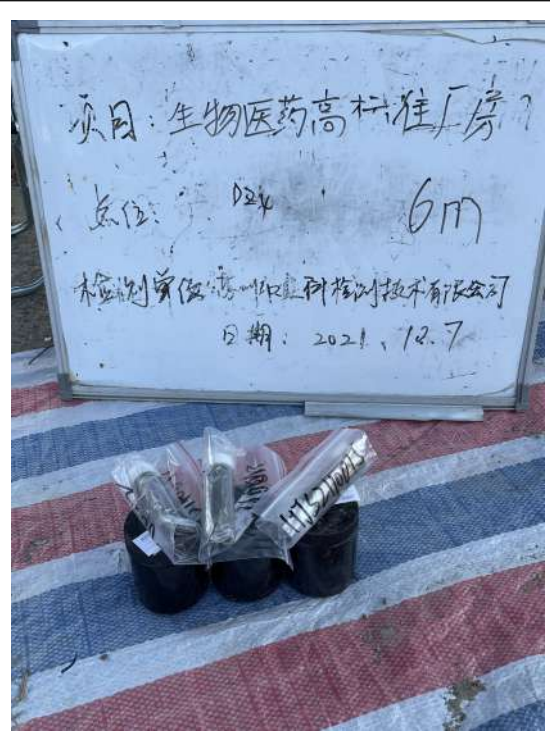 项目: 生物医药高标准厂房
点位: DZ4 6m
检测单位: 检测技术有限公司
日期: 2021.12.7